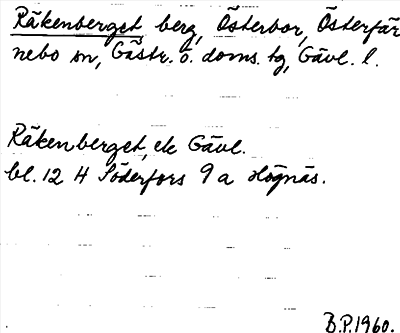 Räkenberget berg, Österbor, Österfär
nebo sn, Gästr. ö. doms. tg, Gävl. l.
Räkenberget, ek Gävl.
bl. 12 H Söderfors 9 a Högnäs.
B.P. 1960.